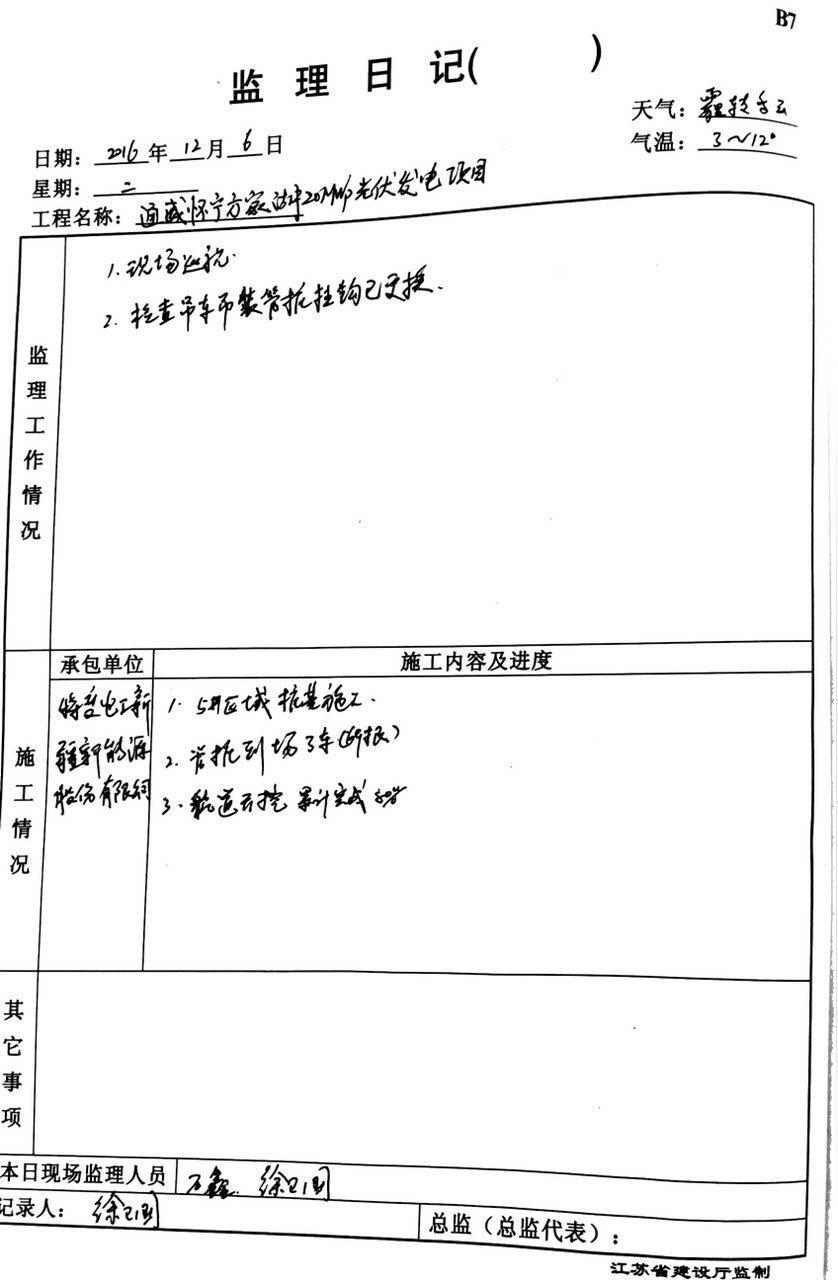 B7
监理日记( )
天气：霾转多云
日期：2016年12月6日
气温：3～12°
星期：二
工程名称：通威怀宁方家 20MWp光伏发电项目
监理工作情况
1.现场巡视.
2.检查吊车吊装管桩挂钩已更换.
施工情况
承包单位
施工内容及进度
特变电工新
疆新能源
股份有限公司
1. 5#区域桩基施工.
2.管桩到场3车
3. 道开挖 累计完成
其它事项
本日现场监理人员
石鑫 徐卫国
记录人：徐卫国
总监（总监代表）：
江苏省建设厅监制